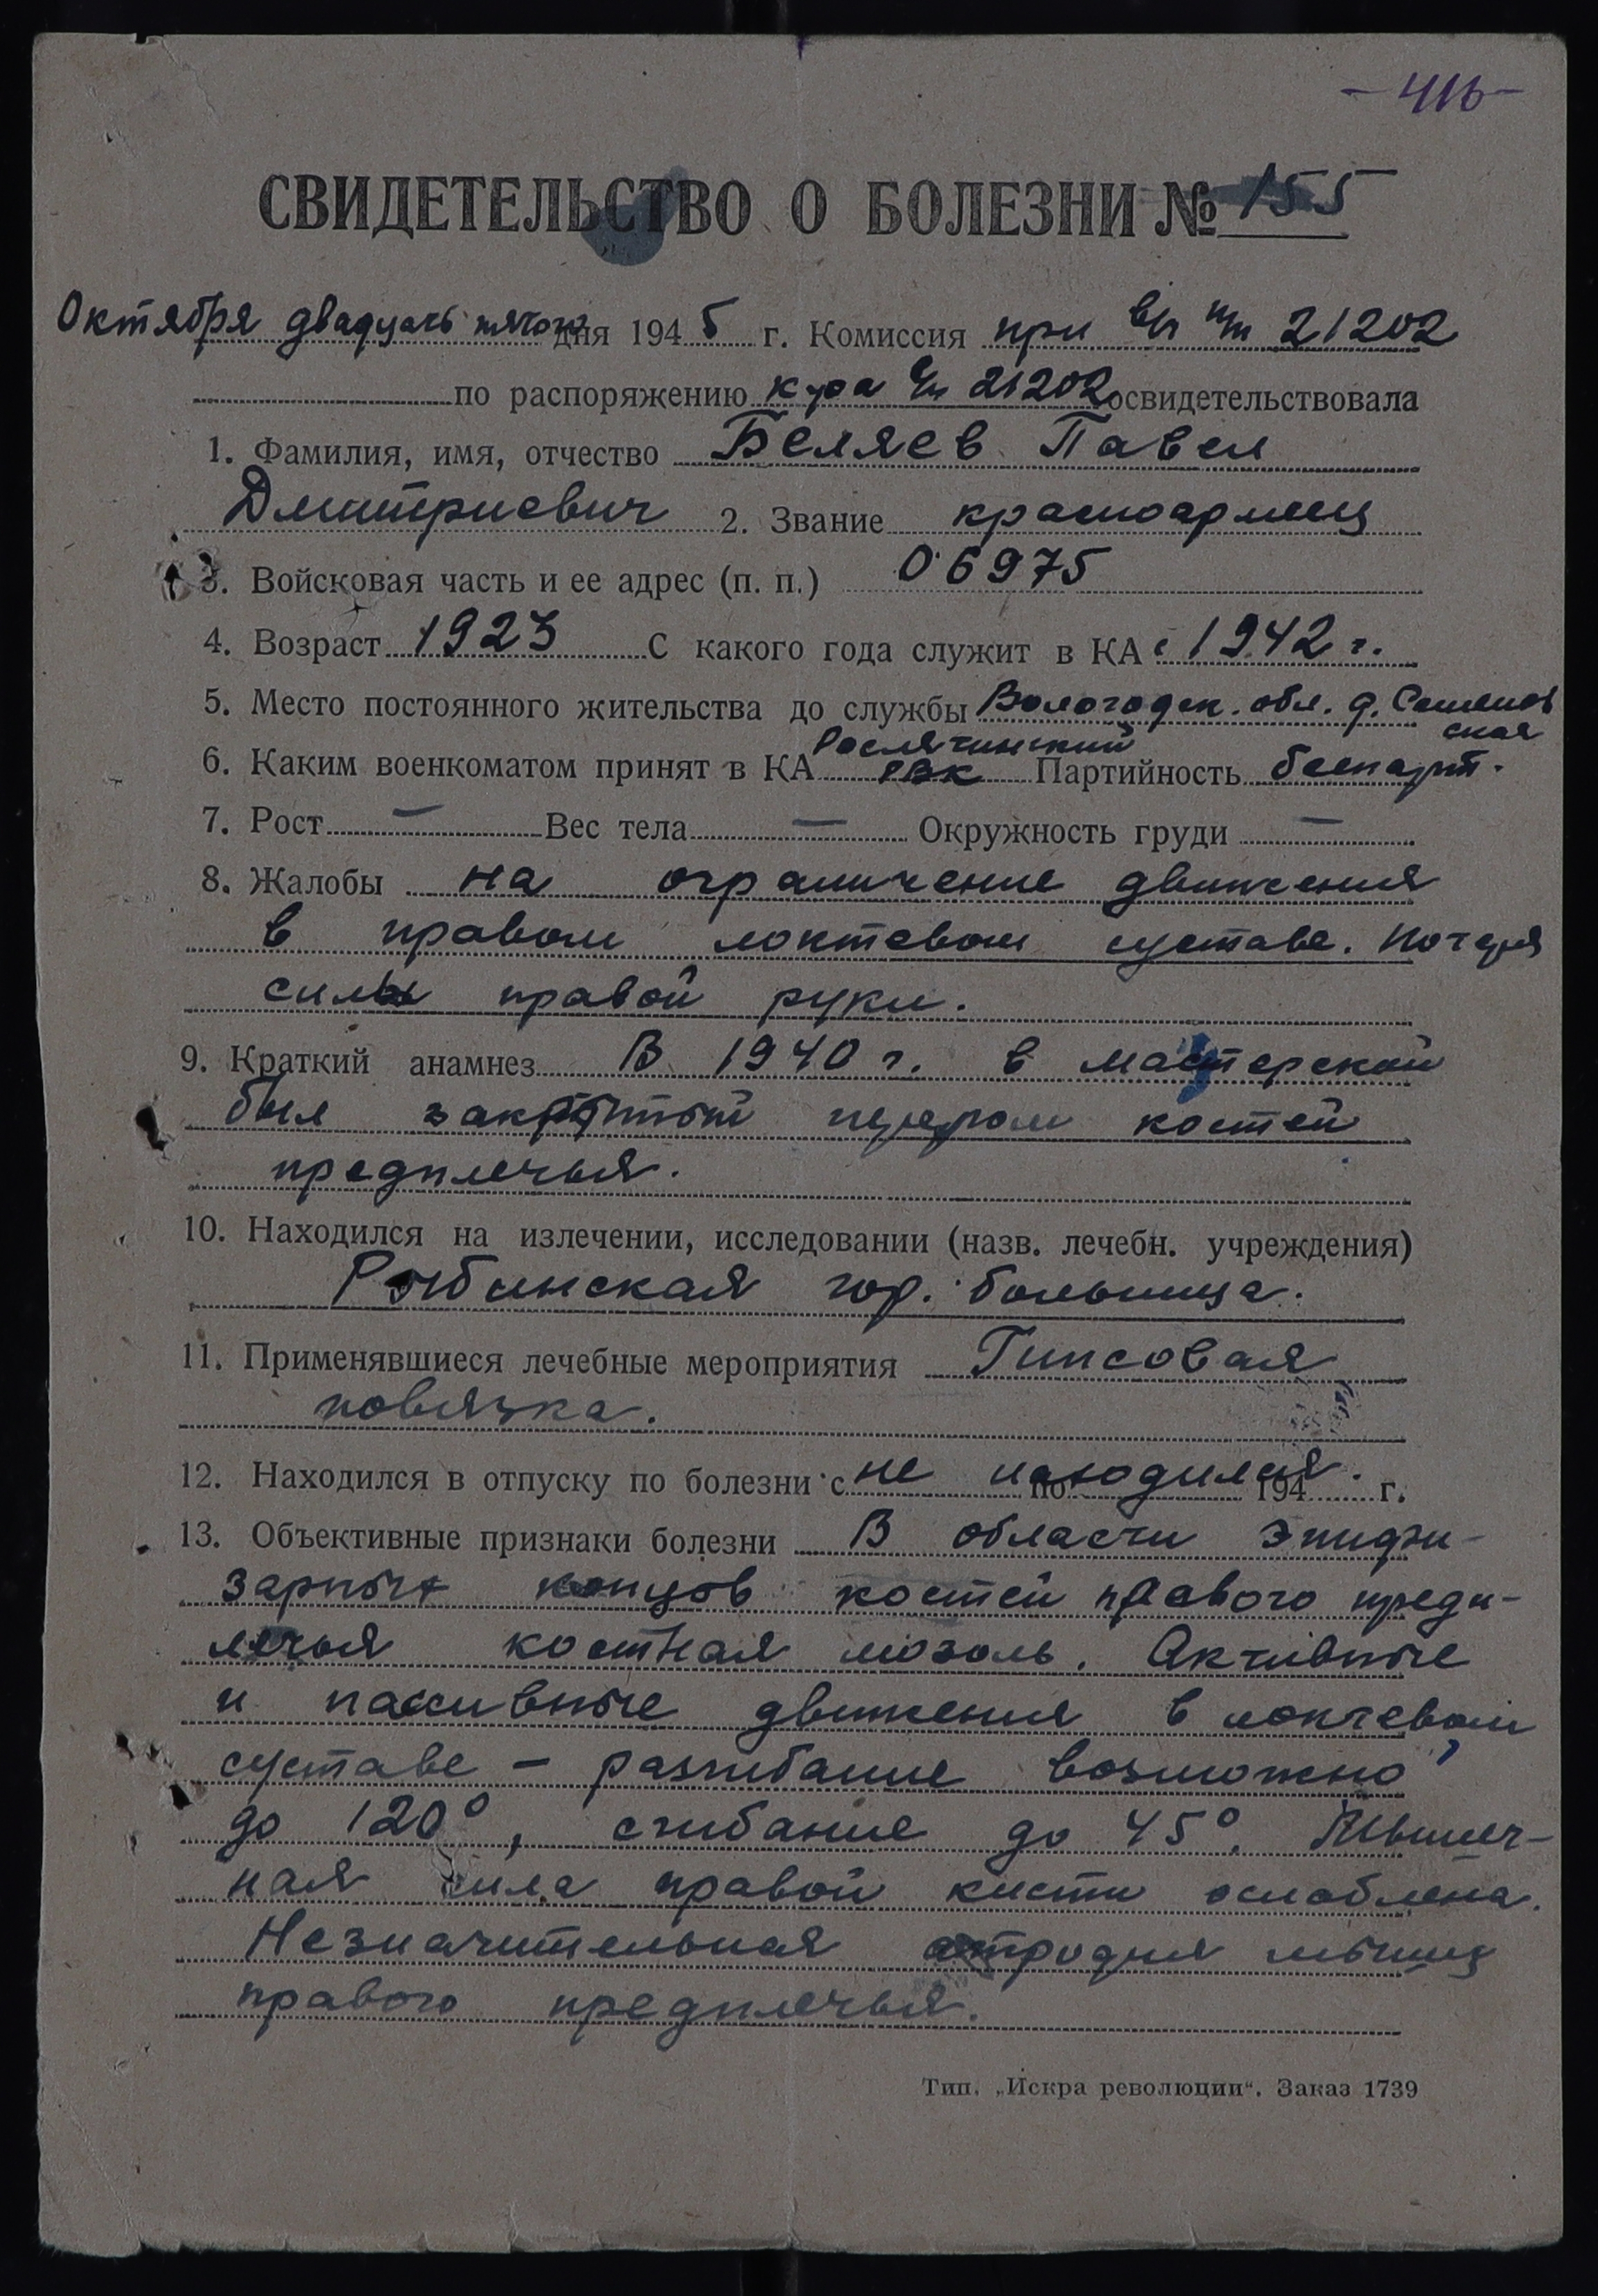 -416-
СВИДЕТЕЛЬСТВО О БОЛЕЗНИ № 155
Октября двадцать пятого дня 1945 г. Комиссия при в/ч п/п 21202
по распоряжению к-ра в/ч 21202 освидетельствовала
1. Фамилия, имя, отчество Беляев Павел
Дмитриевич 2. Звание красноармеец
3. Войсковая часть и ее адрес (п. п.) 06975
4. Возраст 1923 С какого года служит в КА с 1942 г.
5. Место постоянного жительства до службы Вологодск. обл. д. Семенов
ская
6. Каким военкоматом принят в КА Рослятинский РВК Партийность беспарт.
7. Рост — Вес тела — Окружность груди —
8. Жалобы на ограничение движения
в правом локтевом суставе. Потеря
силы правой руки.
9. Краткий анамнез В 1940 г. в мастерской
был закрытый перелом костей
предплечья.
10. Находился на излечении, исследовании (назв. лечебн. учреждения)
Рыбинская гор. больница.
11. Применявшиеся лечебные мероприятия Гипсовая
повязка.
12. Находился в отпуску по болезни с не находился. по 194 г.
13. Объективные признаки болезни В области эпифи-
зарных концов костей правого предп-
лечья костная мозоль. Активные
и пассивные движения в локтевом
суставе – разгибание возможно
до 120°, сгибание до 45°. Мышеч-
ная сила правой кисти ослаблена.
Незначительная атрофия мышц
правого предплечья.
Тип. „Искра революции“. Заказ 1739